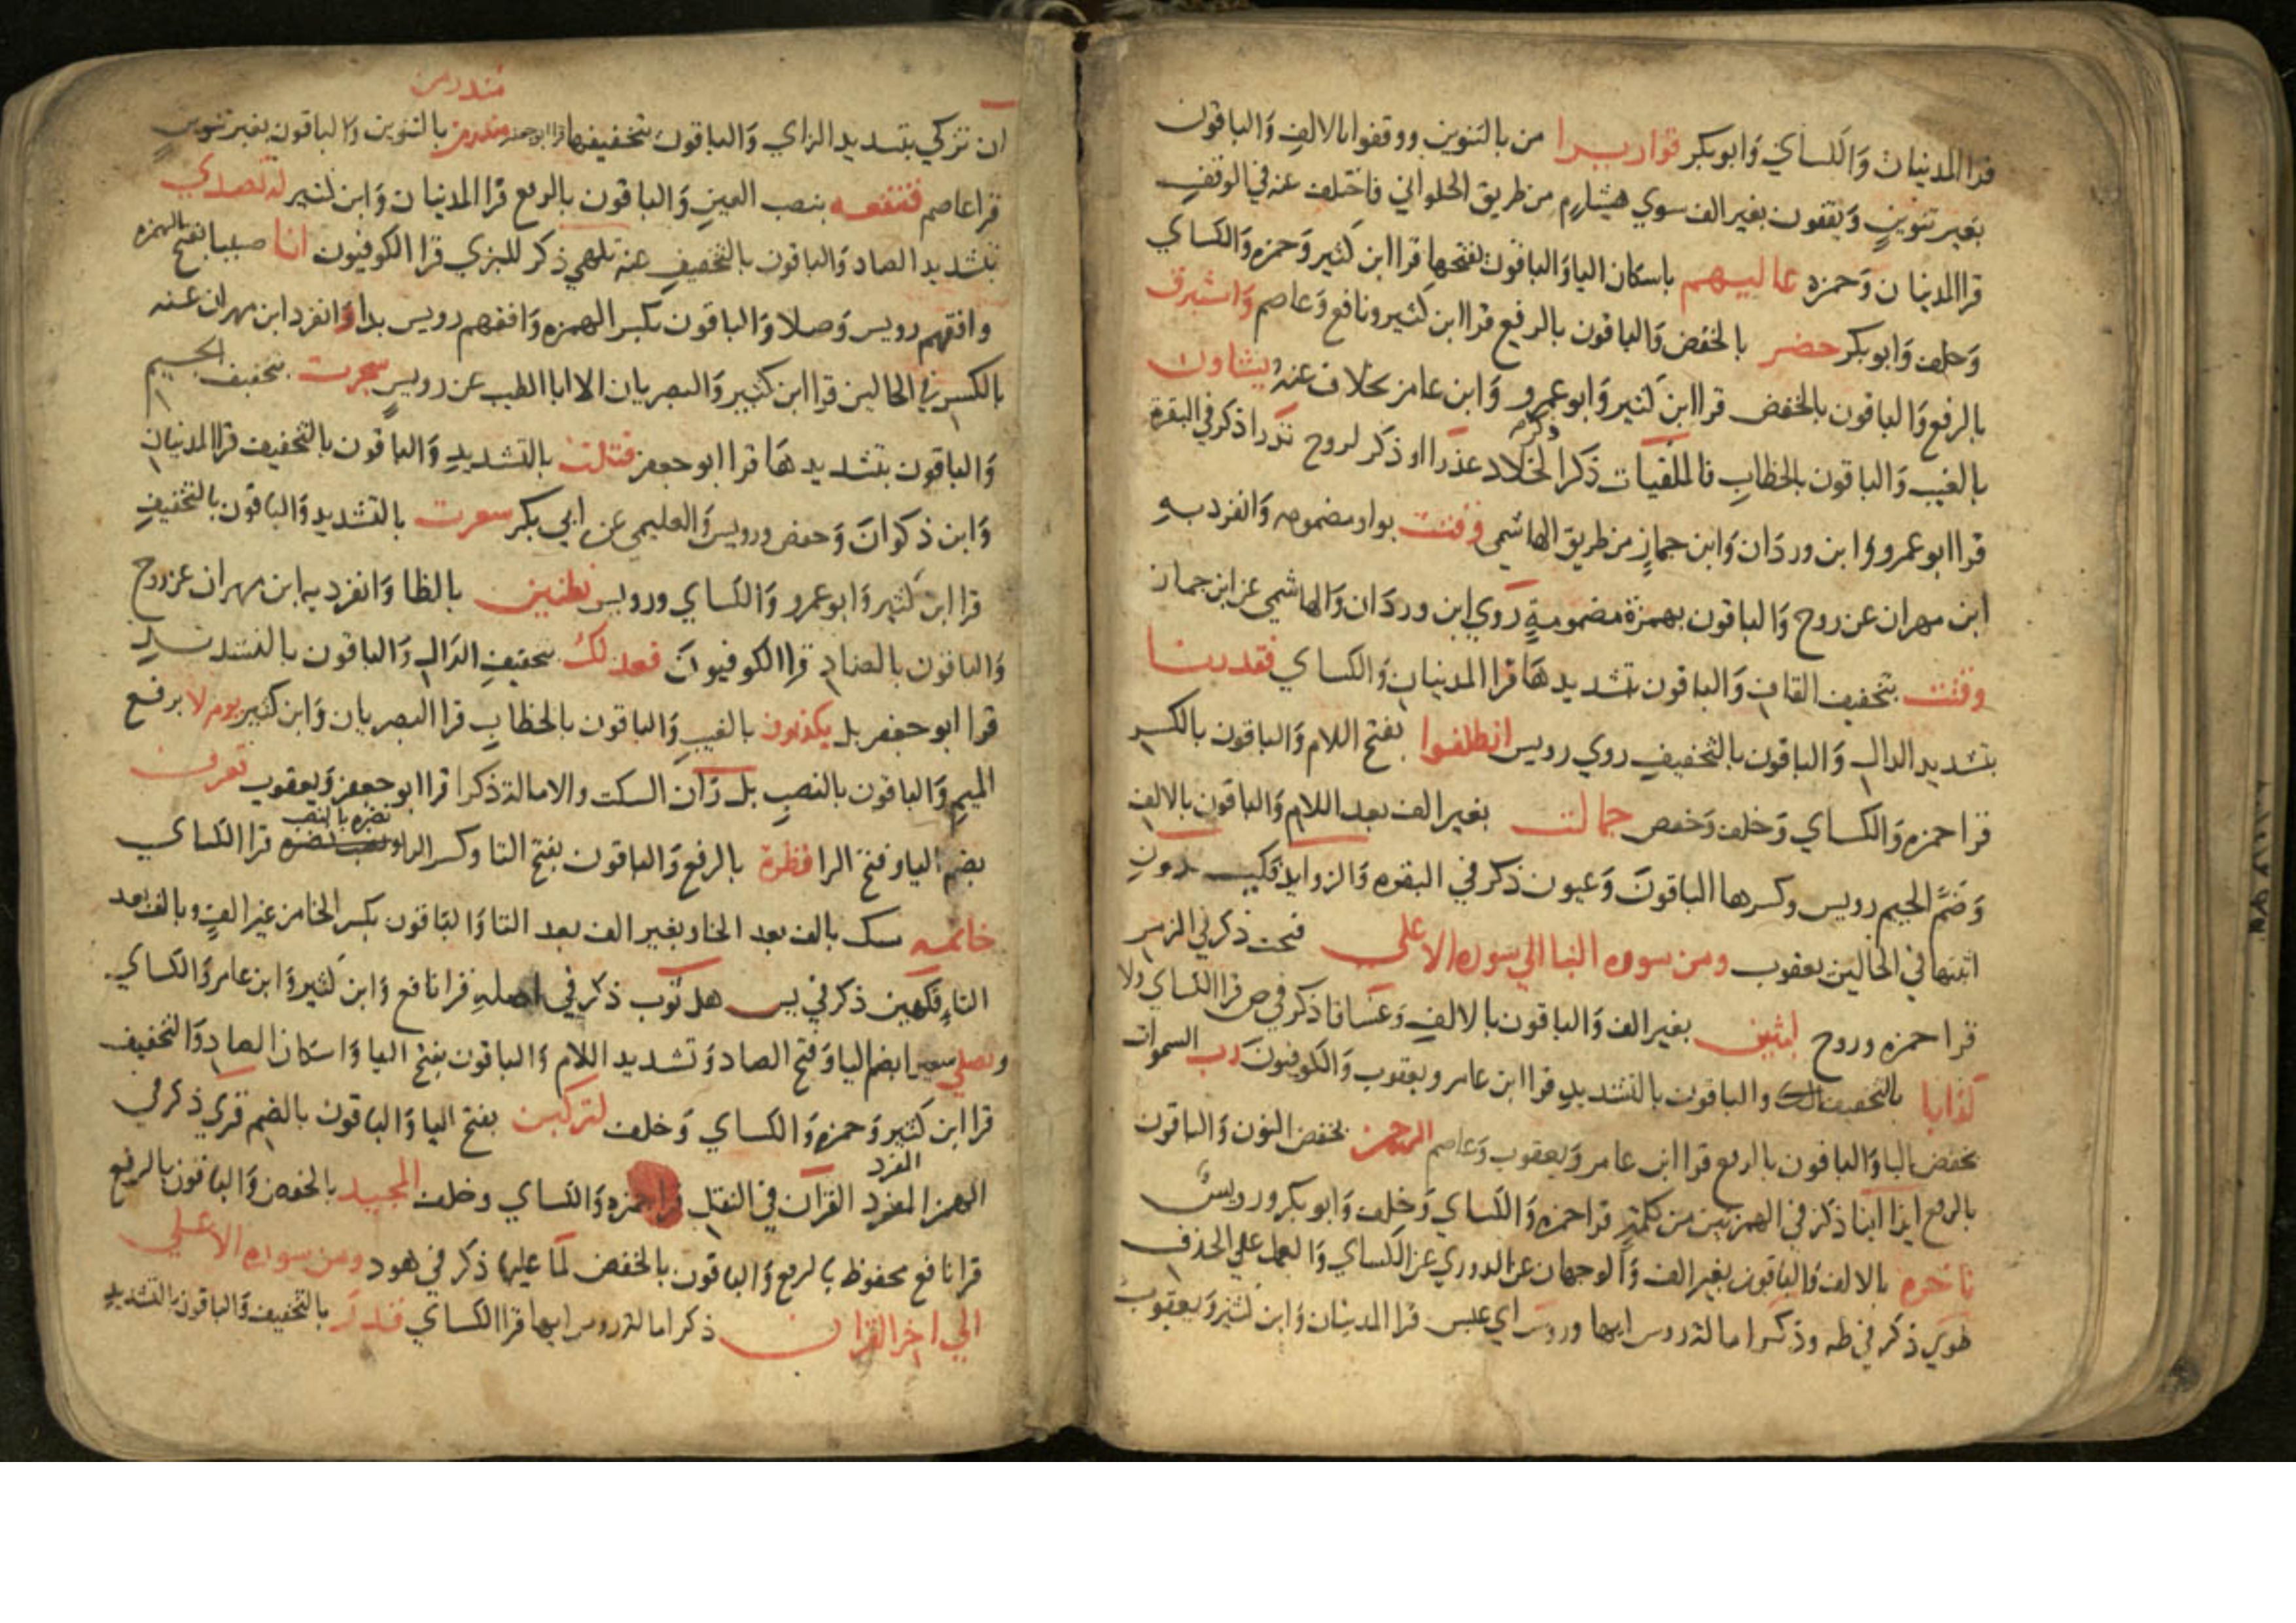 قرا المدنيان والكساي وابو بكر قواريرا من بالتنوين ووقفوا بالالف والباقون
بغير تنوين ويقفون بغير الف سوي هشام من طريق الحلواني فاختلف عنه في الوقف
قرا المدنيان وحمزه عاليهم باسكان اليا والباقون بفتحها قرا ابن كثير وحمزه والكساي
وخلف وابو بكر حضر بالخفض والباقون بالرفع قرا ابن كثير ونافع وعاصم واستبرق
بالرفع والباقون بالخفض قرا ابن كثير وابو عمرو وابن عامر بخلاف عنه يشاون
بالغيب والباقون بالخطاب فالملقيات ذكرا لخلاد عذرا او ذكر لروح نذرا ذكر في البقرة
قرا ابو عمرو وابن وردان وابن جماز من طريق الهاشمي وقتت بواو مضمومه وانفرد به
ابن مهران عن روح والباقون بهمزة مضمومة روي ابن وردان والهاشمي عن ابن جماز
وقتت بتخفيف القاف والباقون بتشديدها قرا المدنيان والكساي فقدرنا
بتشديد الدال والباقون بالتخفيف روي رويس انطلقوا بفتح اللام والباقون بالكسر
قرا حمزه والكساي وخلف وحفص جمالت بغير الف بعد اللام والباقون بالالف
وضم الجيم رويس وكسرها الباقون وعيون ذكر في البقره والزوايد فكيدون
اثبتها في الحالين يعقوب ومن سوره النبا الي سوره الاعلي فتحت ذكر في الزمر
قرا حمزه وروح لبثين بغير الف والباقون بالالف وغساقا ذكر في ص قرا الكساي ولا
كذابا بالتخفيف والباقون بالتشديد قرا ابن عامر ويعقوب والكوفيون رب السموات
بخفض البا والباقون بالرفع قرا ابن عامر ويعقوب وعاصم الرحمن بخفض النون والباقون
بالرفع ايذا اينا ذكر في الهمزتين من كلمة قرا حمزه والكساي وخلف وابو بكر ورويس
ناخره بالالف والباقون بغير الف والوجهان عن الدوري عن الكساي والعمل علي الحذف
طوي ذكر في طه وذكر امالته روس ايها وروس اي عبس قرا المدنيان وابن كثير ويعقوب
منذر من
ان تزكي بتشديد الزاي والباقون بتخفيفها قرا ابو جعفر منذر من بالتنوين والباقون بغير تنوين
قرا عاصم فتنفعه بنصب العين والباقون بالرفع قرا المدنيان وابن كثير له تصدي
بتشديد الصاد والباقون بالتخفيف عنه تلهي ذكر للبزي قرا الكوفيون انا صببنا بفتح الهمزه
وافقهم رويس وصلا والباقون بكسر الهمزه وافقهم رويس بدا وانفرد ابن مهران عنه
بالكسر في الحالين قرا ابن كثير والبصريان الا ابا الطيب عن رويس سجرت بتخفيف الجيم
والباقون بتشديدها قرا ابو جعفر قتلت بالتشديد والباقون بالتخفيف قرا المدنيان
وابن ذكوان وحفص ورويس والعليمي عن ابي بكر سعرت بالتشديد والباقون بالتخفيف
قرا ابن كثير وابو عمرو والكساي ورويس بظنين بالظا وانفرد به ابن مهران عن روح
والباقون بالضاد قرا الكوفيون فعدلك بتخفيف الدال والباقون بالتشديد
قرا ابو جعفر بل يكذبون بالغيب والباقون بالخطاب قرا البصريان وابن كثير يوم لا برفع
الميم والباقون بالنصب بل ران السكت والامالة ذكرا قرا ابو جعفر ويعقوب تعرف
بضم اليا وفتح الرا نضرة بالرفع والباقون بفتح التا وكسر الرا نضره بالنصب قرا الكساي
خاتمه مسك بالف بعد الخا وبغير الف بعد التا والباقون بكسر الخا من غير الف وبالف بعد
التا فكهين ذكر في يس هل ثوب ذكر في اصله قرا نافع وابن كثير وابن عامر والكساي
ويصلي سعيرا بضم اليا وفتح الصاد وتشديد اللام والباقون بفتح اليا واسكان الصاد والتخفيف
قرا ابن كثير وحمزه والكساي وخلف لتركبن بفتح البا والباقون بالضم قري ذكر في
الهمز المفرد القرآن في النقل قرا حمزه والكساي وخلف المجيد بالخفض والباقون بالرفع
قرا نافع محفوظ بالرفع والباقون بالخفض لما عليها ذكر في هود ومن سوره الاعلي
الي اخر القران ذكر امالة روس ايها قرا الكساي قدر بالتخفيف والباقون بالتشديد